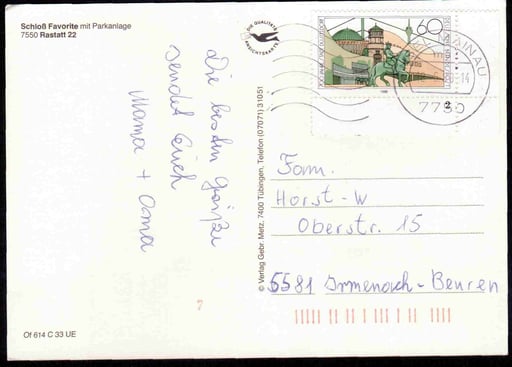 Schloß Favorite mit Parkanlage
7550 Rastatt 22
DIE QUALITÄTS
ANSICHTSKARTE
60
MAINAU
14
7750
2
Die besten Grüße
sendet Euch
Mama + Oma
© Verlag Gebr. Metz, 7400 Tübingen, Telefon (07071) 31051
Fam.
Horst-W
Oberstr. 15
5581 Irmenach-Beuren
7
Of 614 C 33 UE